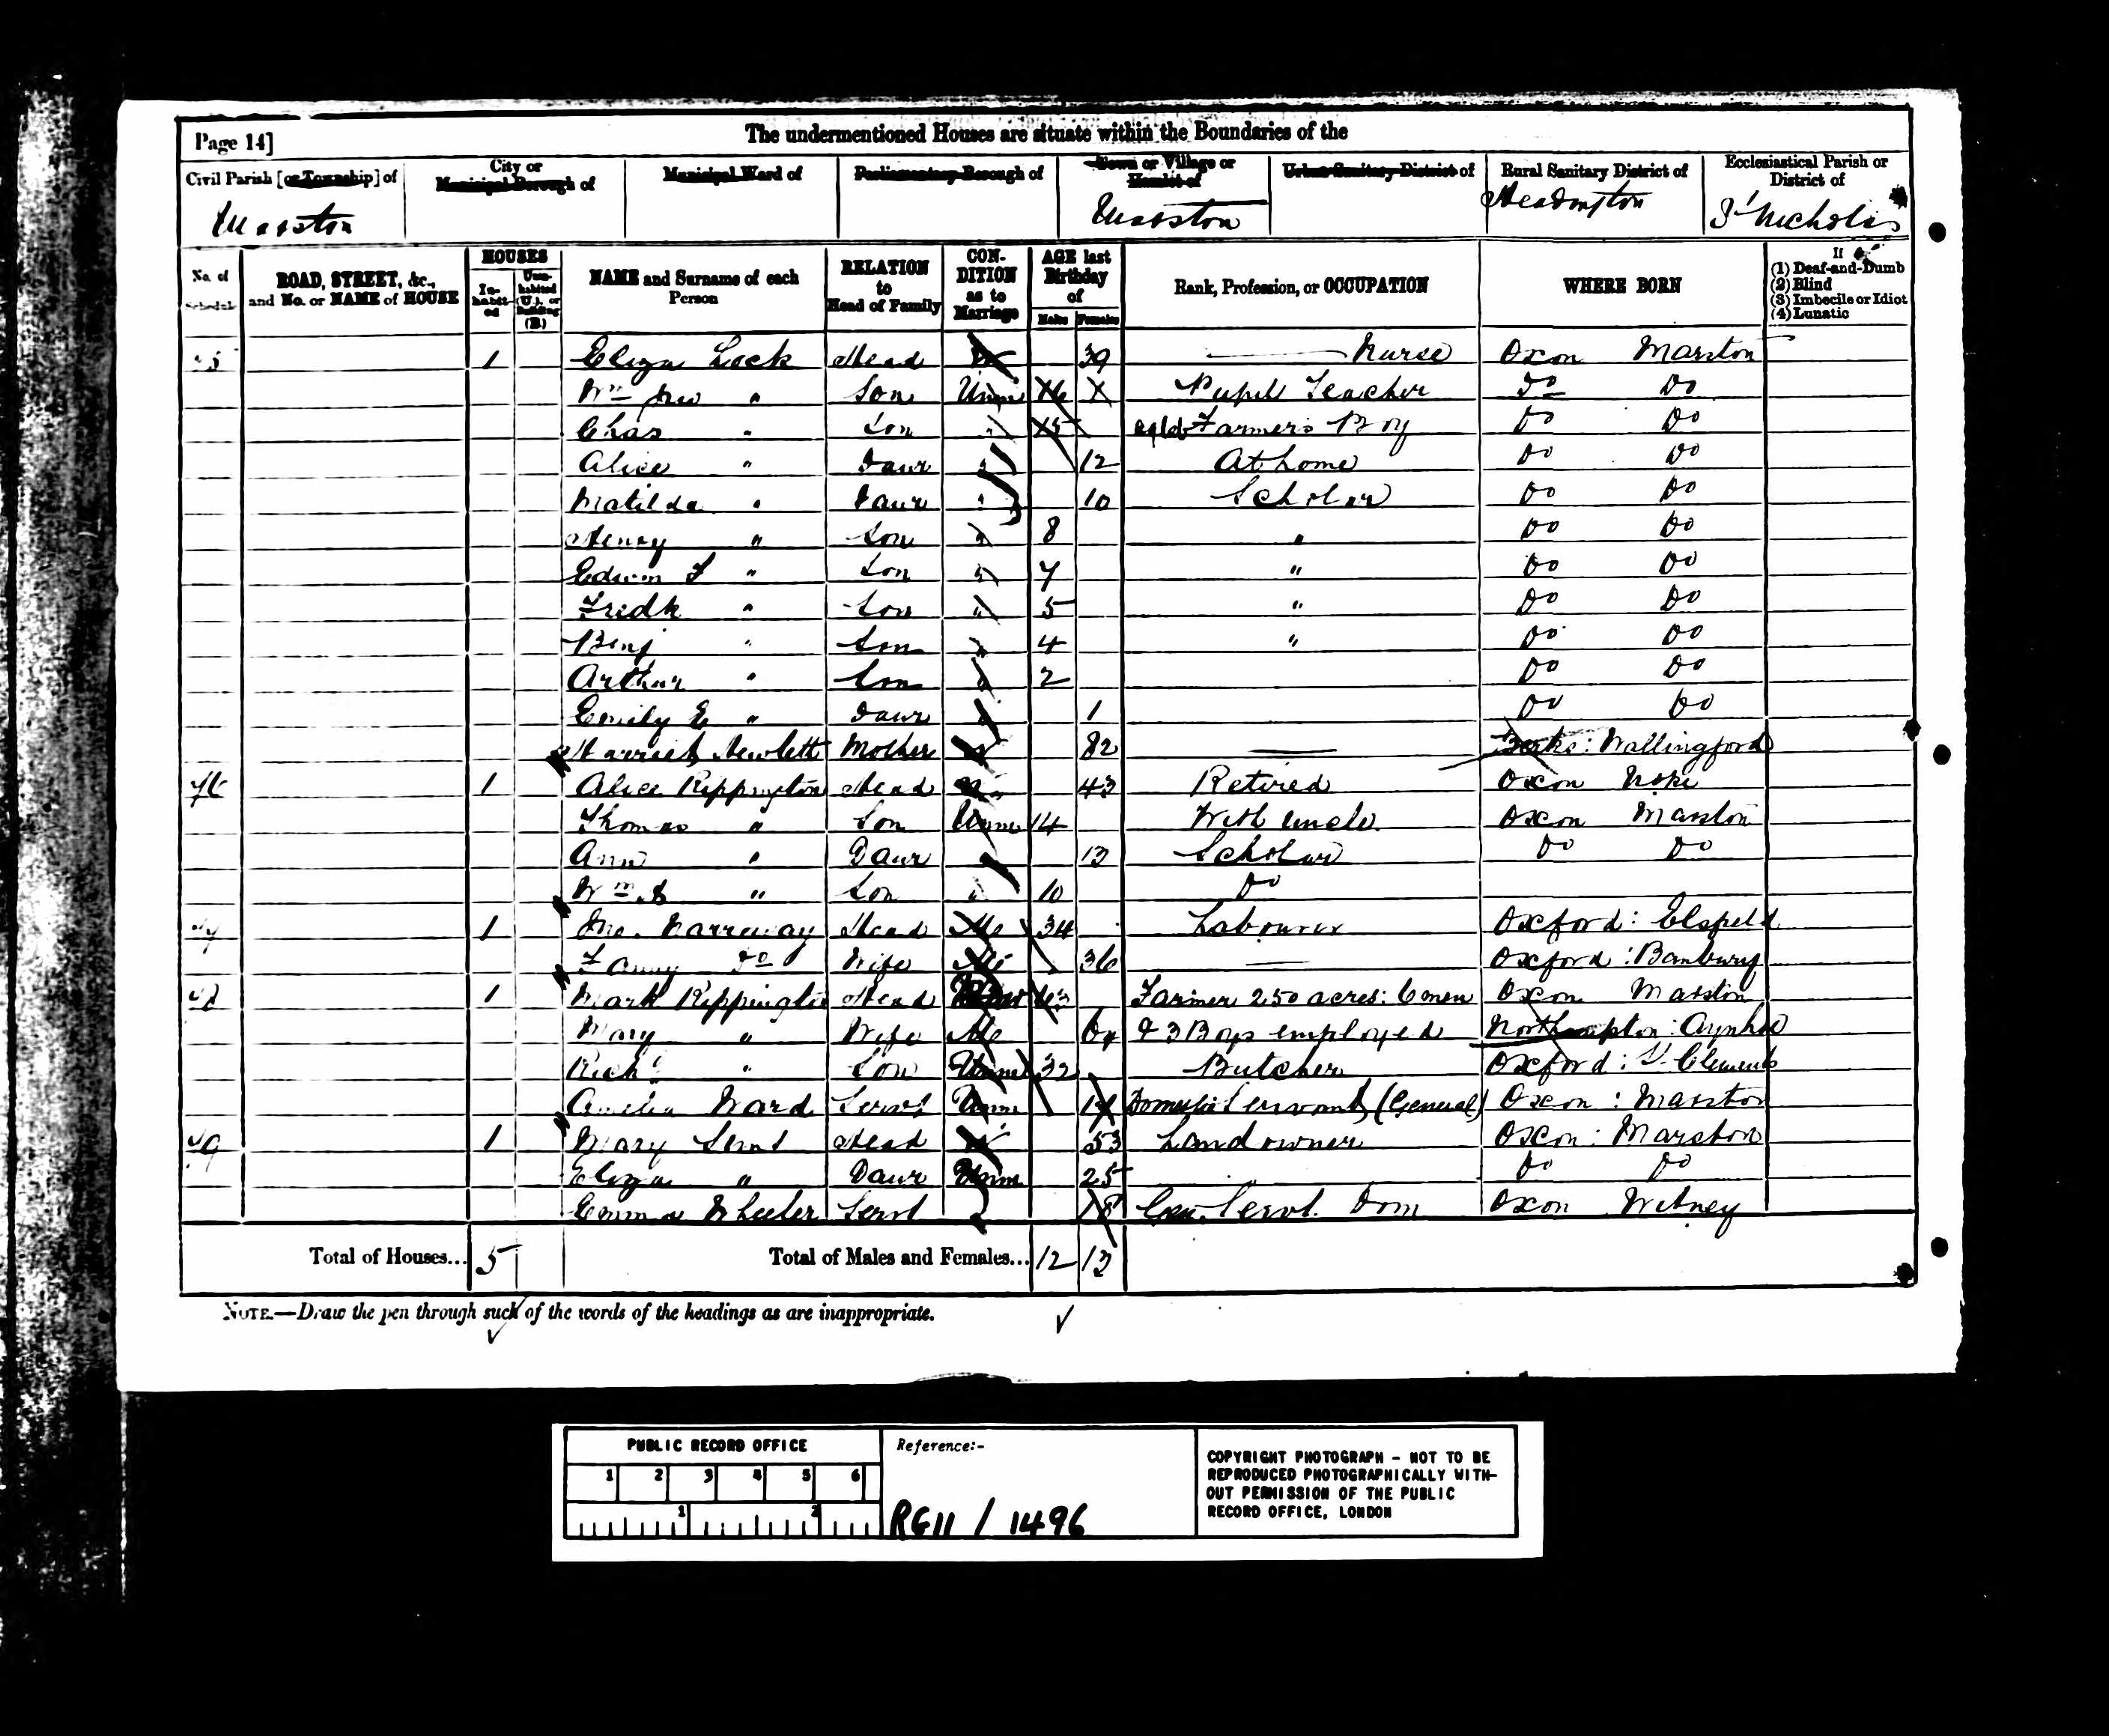 Page 14]
The undermentioned Houses are situate within the Boundaries of the
Civil Parish [or Township] of
City or Municipal Borough of
Municipal Ward of
Parliamentary Borough of
Town or Village or Hamlet of
Urban Sanitary District of
Rural Sanitary District of
Ecclesiastical Parish or District of
Marston
Marston
Headington
St Nicholas
No. of Schedule
ROAD, STREET, &c., and No. or NAME of HOUSE
HOUSES
In-habit-ed
Unin-habited (U.), or Building (B.)
NAME and Surname of each Person
RELATION to Head of Family
CON-DITION as to Marriage
AGE last Birthday of
Males Females
Rank, Profession, or OCCUPATION
WHERE BORN
If
(1) Deaf-and-Dumb
(2) Blind
(3) Imbecile or Idiot
(4) Lunatic
1 Eliza Lock Head 39 Nurse Oxon Marston
Wm " Son Unm 16 Pupil Teacher Do Do
Chas " Son " 15 Farmers Boy Do Do
Alice " Daur " 12 At home Do Do
Matilda " Daur " 10 Scholar Do Do
Henry " Son " 8 " Do Do
Edwin F " Son " 7 " Do Do
Fredk " Son " 5 " Do Do
Benj " Son " 4 " Do Do
Arthur " Son " 2 Do Do
Emily E " Daur " 1 Do Do
Harriet Newlett Mother 82 Berks: Wallingford
76 1 Alice Rippington Head 43 Retired Oxon Noke
Thomas " Son Unm 14 With uncle Oxon Marston
Ann " Daur " 13 Scholar Do Do
Wm S " Son " 10 Do
1 Jno. Narroway Head Mar 34 Labourer Oxford: Elsfield
Fanny Do Wife Mar 36 Oxford: Banbury
1 Mark Rippington Head 63 Farmer 250 acres: 6 men Oxon Marston
Mary " Wife Mar & 3 Boys employed Northampton: Aynhoe
Richd " Son Unm 32 Butcher Oxford: St Clements
Amelia Ward Servt Unm Domestic Servant (General) Oxon: Marston
1 Mary Head 53 Landowner Oxon: Marston
Eliza " Daur Unm 25 Do Do
Emma Wheeler Servt 18 Gen. Servt. Dom Oxon Witney
Total of Houses... 5
Total of Males and Females... 12 13
NOTE.—Draw the pen through such of the words of the headings as are inappropriate.
PUBLIC RECORD OFFICE
1 2 3 4 5 6
1 2
Reference:-
RG11 / 1496
COPYRIGHT PHOTOGRAPH - NOT TO BE
REPRODUCED PHOTOGRAPHICALLY WITH-
OUT PERMISSION OF THE PUBLIC
RECORD OFFICE, LONDON